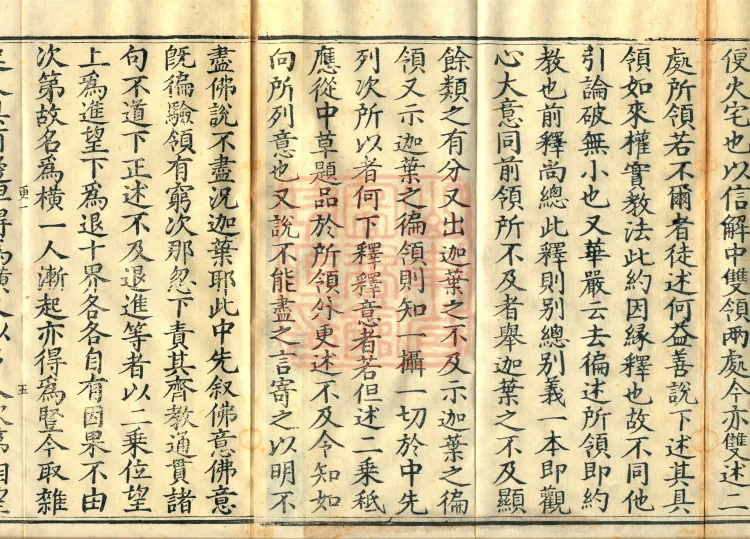 便火宅也以信解中雙領兩處今亦雙述二
處所領若不爾者徒述何益善說下述其具
領如來權實教法此約因緣釋也故不同他
引論破無小也又華嚴云去徧述所領即約
教也前釋尚總此釋則別總別義一本即觀
心大意同前領所不及者舉迦葉之不及顯
餘類之有分又出迦葉之不及示迦葉之徧
領又示迦葉之徧領則知一攝一切於中先
列次所以者何下釋釋意者若但述二乘秪
應從中草題品於所領外更述不及令知如
向所列意也又說不能盡之言寄之以明不
盡佛說不盡況迦葉耶此中先叙佛意佛意
旣徧驗領有窮次那忽下責其齊教通貫諸
句不道下正述不及退進等者以二乘位望
上爲進望下爲退十界各各自有因果不由
次第故名爲橫一人漸起亦得爲豎今取雜
更一
五